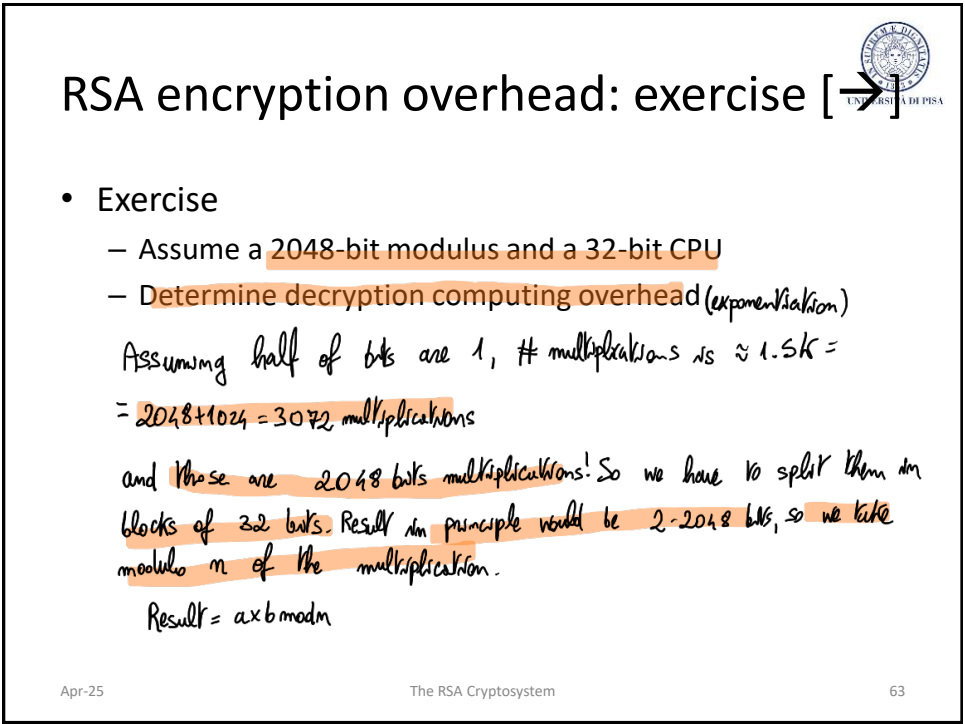 RSA encryption overhead: exercise [→]
UNIVERSITÀ DI PISA
• Exercise
– Assume a 2048-bit modulus and a 32-bit CPU
– Determine decryption computing overhead (exponentiation)
Assuming half of bits are 1, # multiplications is ≈ 1.5K =
= 2048+1024 = 3072 multiplications
and those are 2048 bits multiplications! So we have to split them in
blocks of 32 bits. Result in principle would be 2·2048 bits, so we take
modulo n of the multiplication.
Result = a×b mod n
Apr-25
The RSA Cryptosystem
63